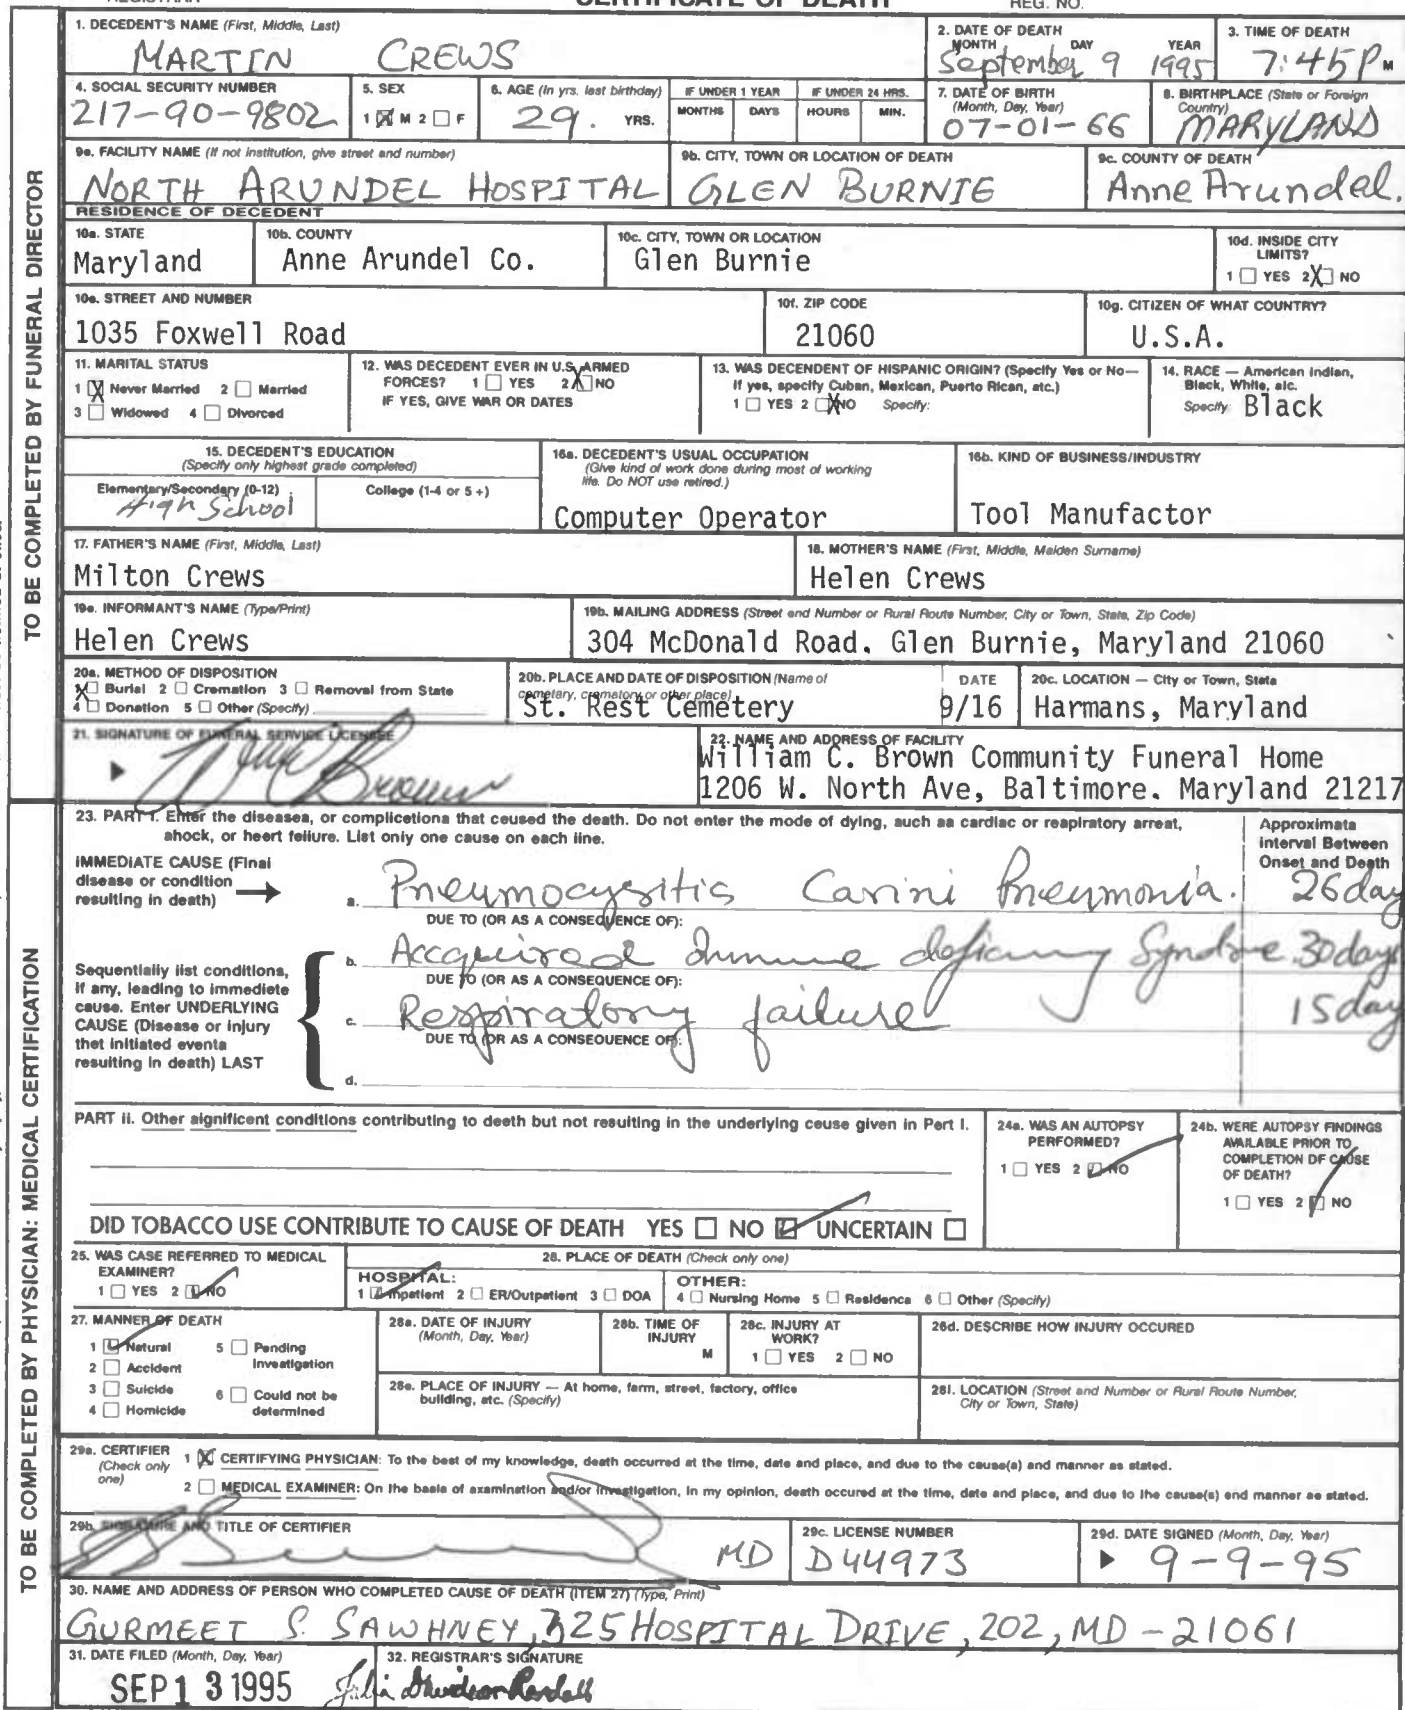 REGISTRAR CERTIFICATE OF DEATH REG. NO.
TO BE COMPLETED BY FUNERAL DIRECTOR
1. DECEDENT'S NAME (First, Middle, Last)
MARTIN CREWS
2. DATE OF DEATH
MONTH DAY YEAR
September 9 1995
3. TIME OF DEATH
7:45P M
4. SOCIAL SECURITY NUMBER
217-90-9802
5. SEX
1 X M 2 F
6. AGE (In yrs. last birthday)
29. YRS.
IF UNDER 1 YEAR
MONTHS DAYS
IF UNDER 24 HRS.
HOURS MIN.
7. DATE OF BIRTH
(Month, Day, Year)
07-01-66
8. BIRTHPLACE (State or Foreign
Country)
MARYLAND
9a. FACILITY NAME (If not institution, give street and number)
NORTH ARUNDEL HOSPITAL
9b. CITY, TOWN OR LOCATION OF DEATH
GLEN BURNIE
9c. COUNTY OF DEATH
Anne Arundel.
RESIDENCE OF DECEDENT
10a. STATE
Maryland
10b. COUNTY
Anne Arundel Co.
10c. CITY, TOWN OR LOCATION
Glen Burnie
10d. INSIDE CITY
LIMITS?
1 YES 2 X NO
10e. STREET AND NUMBER
1035 Foxwell Road
10f. ZIP CODE
21060
10g. CITIZEN OF WHAT COUNTRY?
U.S.A.
11. MARITAL STATUS
1 X Never Married 2 Married
3 Widowed 4 Divorced
12. WAS DECEDENT EVER IN U.S. ARMED
FORCES? 1 YES 2 X NO
IF YES, GIVE WAR OR DATES
13. WAS DECENDENT OF HISPANIC ORIGIN? (Specify Yes or No—
If yes, specify Cuban, Mexican, Puerto Rican, etc.)
1 YES 2 X NO Specify:
14. RACE — American Indian,
Black, White, etc.
Specify Black
15. DECEDENT'S EDUCATION
(Specify only highest grade completed)
Elementary/Secondary (0-12) College (1-4 or 5 +)
High School
16a. DECEDENT'S USUAL OCCUPATION
(Give kind of work done during most of working
life. Do NOT use retired.)
Computer Operator
16b. KIND OF BUSINESS/INDUSTRY
Tool Manufactor
17. FATHER'S NAME (First, Middle, Last)
Milton Crews
18. MOTHER'S NAME (First, Middle, Maiden Surname)
Helen Crews
19a. INFORMANT'S NAME (Type/Print)
Helen Crews
19b. MAILING ADDRESS (Street and Number or Rural Route Number, City or Town, State, Zip Code)
304 McDonald Road. Glen Burnie, Maryland 21060
20a. METHOD OF DISPOSITION
1 X Burial 2 Cremation 3 Removal from State
4 Donation 5 Other (Specify)
20b. PLACE AND DATE OF DISPOSITION (Name of
cemetery, crematory or other place)
St. Rest Cemetery
DATE
9/16
20c. LOCATION — City or Town, State
Harmans, Maryland
21. SIGNATURE OF FUNERAL SERVICE LICENSEE
Brown
22. NAME AND ADDRESS OF FACILITY
William C. Brown Community Funeral Home
1206 W. North Ave, Baltimore. Maryland 21217
TO BE COMPLETED BY PHYSICIAN: MEDICAL CERTIFICATION
23. PART I. Enter the diseases, or complications that caused the death. Do not enter the mode of dying, such as cardiac or respiratory arrest,
shock, or heart failure. List only one cause on each line.
Approximate
Interval Between
Onset and Death
IMMEDIATE CAUSE (Final
disease or condition
resulting in death)
a. Pneumocysitis Carini Pneumonia. 26 day
DUE TO (OR AS A CONSEQUENCE OF):
Sequentially list conditions,
if any, leading to immediate
cause. Enter UNDERLYING
CAUSE (Disease or injury
that initiated events
resulting in death) LAST
b. Accquired Immune deficiency Syndrome. 30 days
DUE TO (OR AS A CONSEQUENCE OF):
c. Respiratory failure 15 day
DUE TO (OR AS A CONSEQUENCE OF):
d.
PART II. Other significant conditions contributing to death but not resulting in the underlying cause given in Part I.
24a. WAS AN AUTOPSY
PERFORMED?
1 YES 2 NO
24b. WERE AUTOPSY FINDINGS
AVAILABLE PRIOR TO
COMPLETION OF CAUSE
OF DEATH?
1 YES 2 NO
DID TOBACCO USE CONTRIBUTE TO CAUSE OF DEATH YES NO UNCERTAIN
25. WAS CASE REFERRED TO MEDICAL
EXAMINER?
1 YES 2 NO
26. PLACE OF DEATH (Check only one)
HOSPITAL:
1 Inpatient 2 ER/Outpatient 3 DOA
OTHER:
4 Nursing Home 5 Residence 6 Other (Specify)
27. MANNER OF DEATH
1 Natural 5 Pending
2 Accident Investigation
3 Suicide 6 Could not be
4 Homicide determined
28a. DATE OF INJURY
(Month, Day, Year)
28b. TIME OF
INJURY
M
28c. INJURY AT
WORK?
1 YES 2 NO
28d. DESCRIBE HOW INJURY OCCURED
28e. PLACE OF INJURY — At home, farm, street, factory, office
building, etc. (Specify)
28f. LOCATION (Street and Number or Rural Route Number,
City or Town, State)
29a. CERTIFIER
(Check only
one)
1 X CERTIFYING PHYSICIAN: To the best of my knowledge, death occurred at the time, date and place, and due to the cause(s) and manner as stated.
2 MEDICAL EXAMINER: On the basis of examination and/or investigation, in my opinion, death occured at the time, date and place, and due to the cause(s) and manner as stated.
29b. SIGNATURE AND TITLE OF CERTIFIER
MD
29c. LICENSE NUMBER
D44973
29d. DATE SIGNED (Month, Day, Year)
9-9-95
30. NAME AND ADDRESS OF PERSON WHO COMPLETED CAUSE OF DEATH (ITEM 27) (Type, Print)
GURMEET S. SAWHNEY, 325 HOSPITAL DRIVE, 202, MD - 21061
31. DATE FILED (Month, Day, Year)
SEP 13 1995
32. REGISTRAR'S SIGNATURE